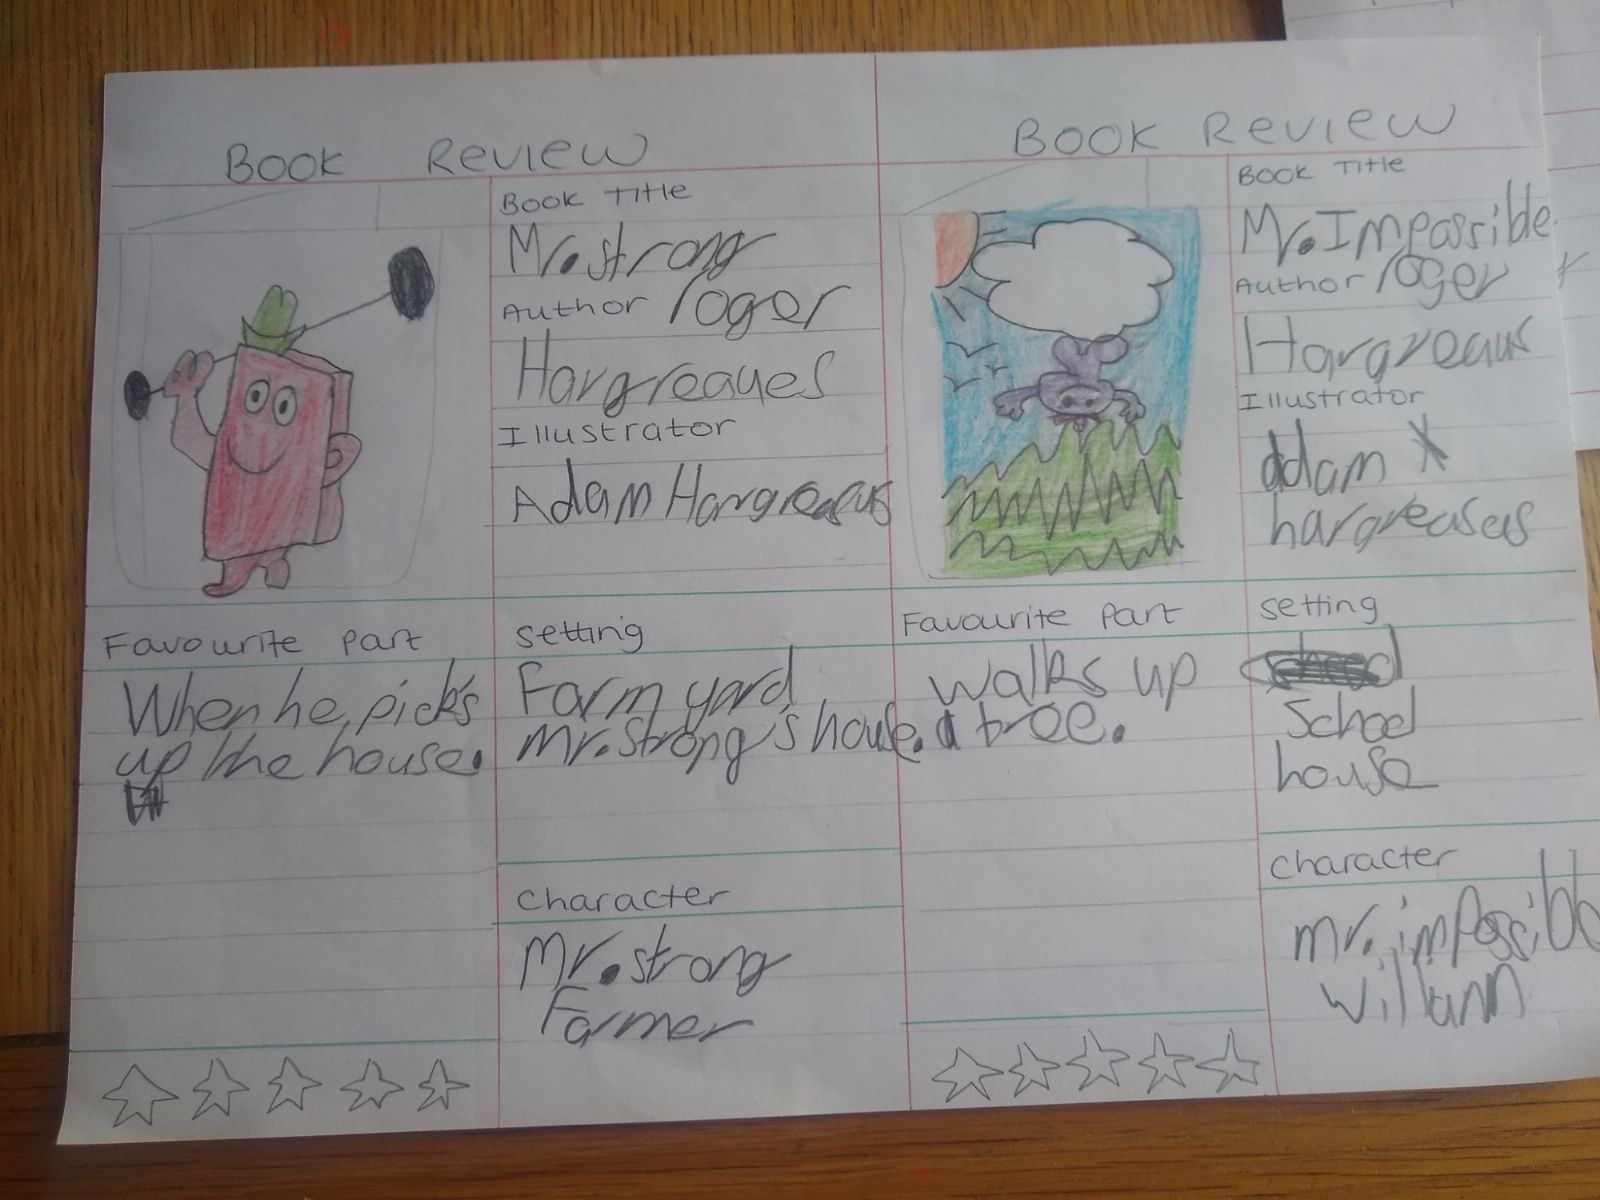 Book Review
Book Title
Mr. strong
Author roger
Hargreaves
Illustrator
Adam Hargreaeus
Favourite part
When he picks
up the house.
setting
Farm yard
Mr. strong's house.
character
Mr. strong
Farmer
Book Review
Book Title
Mr. Impossible
Author roger
Hargreaus
Illustrator
adam
hargreases
Favourite part
walks up
a tree.
setting
School
house
character
mr. impossible
William